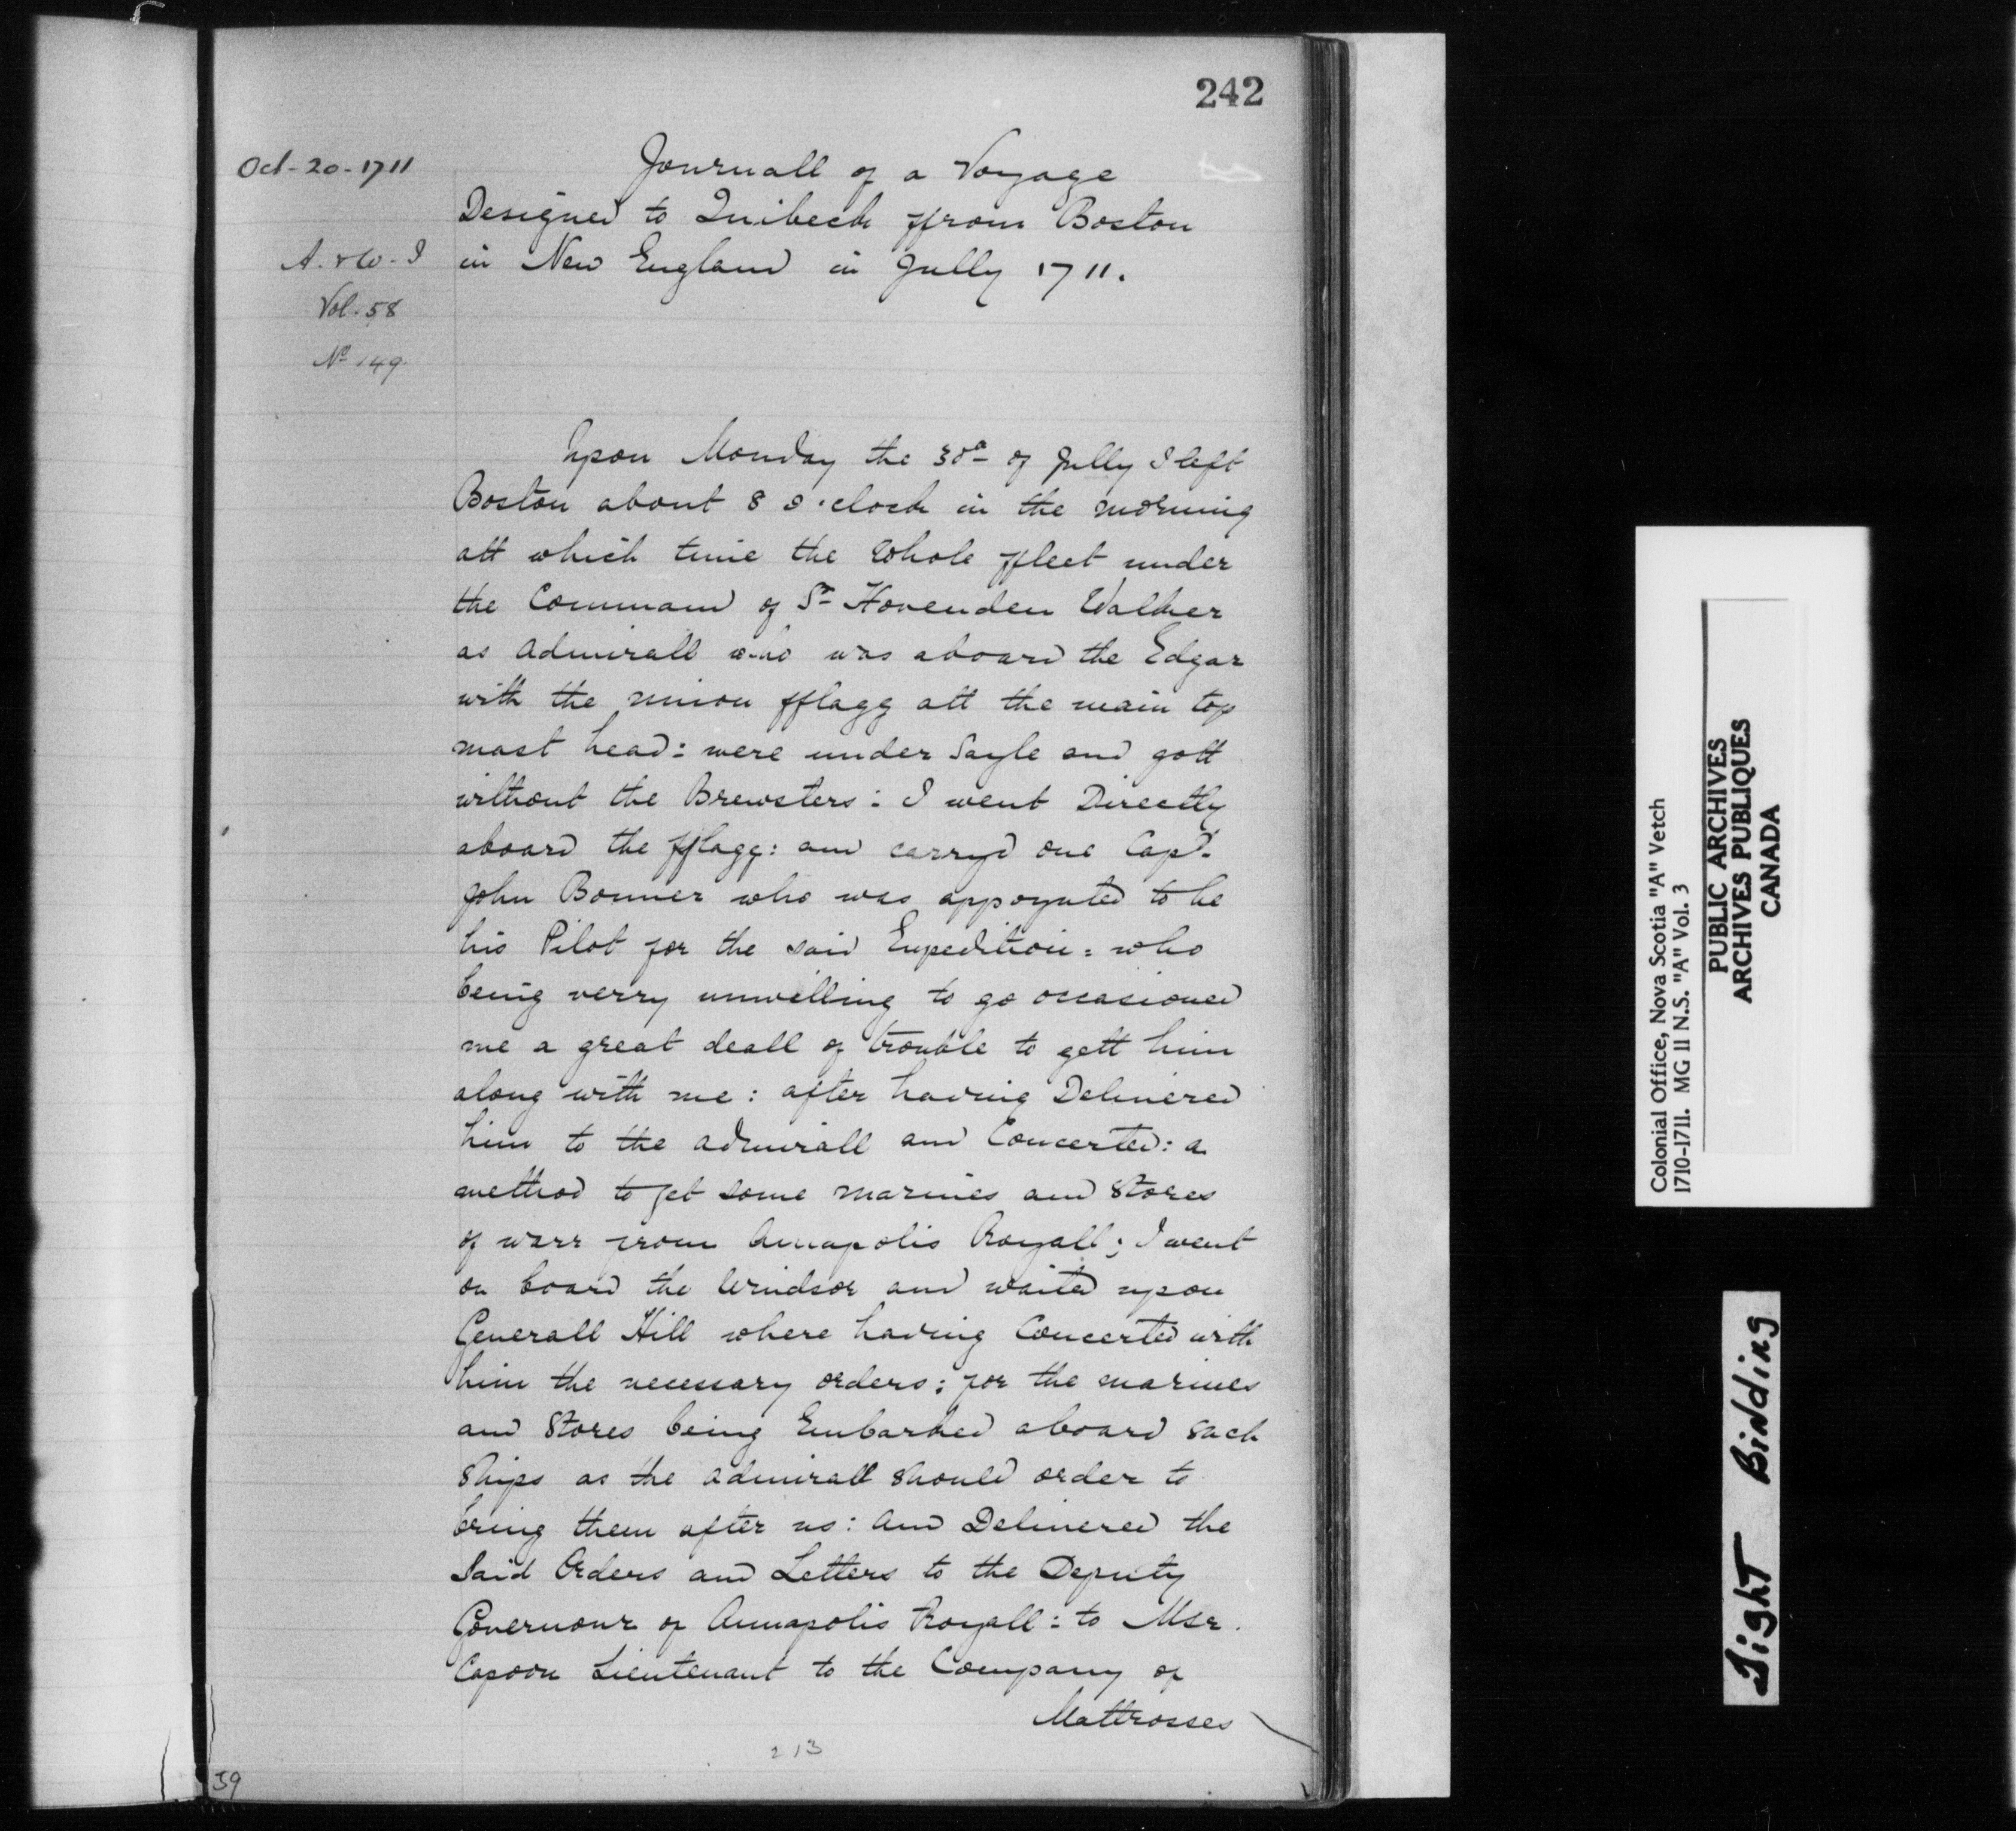 242
Oct-20-1711
Journall of a Voyage
Designed to Quibeck ffrom Boston
A. & W. I
in New England in Jully 1711.
Vol. 58
No 149.
Upon Monday the 30a of Jully I left
Boston about 8 o'clock in the morning
att which time the Whole ffleet under
the Command of Sr Hovenden Walker
as Admirall who was aboard the Edgar
with the union fflagg att the main top
mast head: were under Sayle and gott
without the Brewsters: I went Directly
aboard the fflagg: and carryd one Capt.
John Bonner who was appoynted to be
his Pilot for the said Expedition: who
being verry unwilling to go occasioned
me a great deall of trouble to gett him
along with me: after having Delivered
him to the admirall and Concerted: a
method to get some marines and Stores
of warr from Annapolis Royall; I went
on board the Windsor and waited upon
Generall Hill where having Concerted with
him the necessary orders: for the marines
and Stores being Embarked aboard such
Ships as the admirall should order to
bring them after us: and Delivered the
Said Orders and Letters to the Deputy
Governour of Annapolis Royall: to Msr.
Capoon Lieutenant to the Company of
Mattrosses
213
39
Colonial Office, Nova Scotia "A" Vetch
1710-1711. MG 11 N.S. "A" Vol. 3
PUBLIC ARCHIVES
ARCHIVES PUBLIQUES
CANADA
Tight Bidding